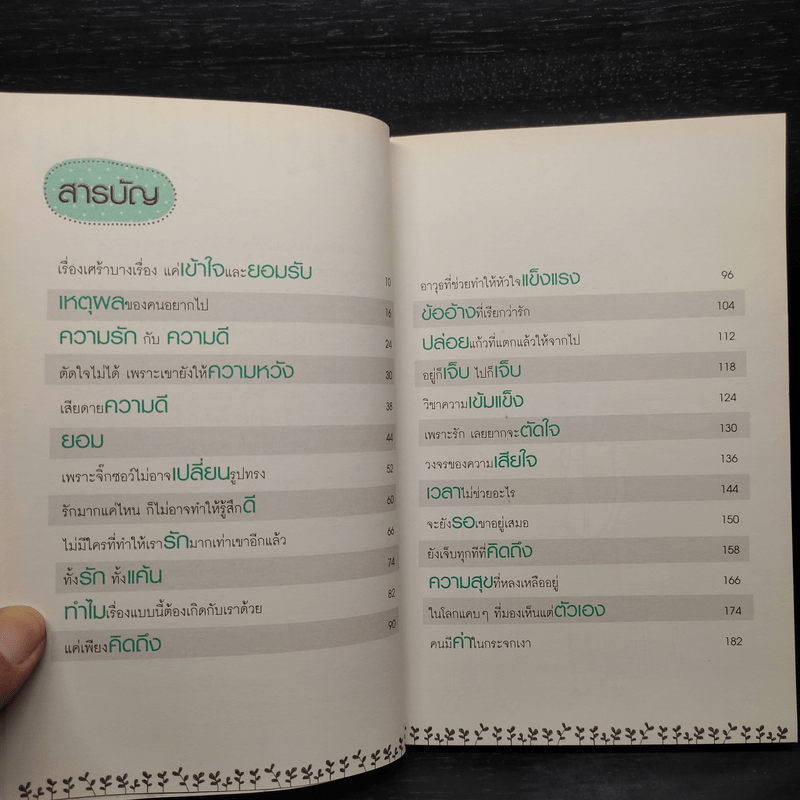 สารบัญ
เรื่องเศร้าบางเรื่อง แค่เข้าใจและยอมรับ 10
เหตุผลของคนอยากไป 16
ความรัก กับ ความดี 24
ตัดใจไม่ได้ เพราะเขายังให้ความหวัง 30
เสียดายความดี 38
ยอม 44
เพราะจิ๊กซอว์ไม่อาจเปลี่ยนรูปทรง 52
รักมากแค่ไหน ก็ไม่อาจทำให้รู้สึกดี 60
ไม่มีใครที่ทำให้เรารักมากเท่าเขาอีกแล้ว 66
ทั้งรัก ทั้งแค้น 74
ทำไมเรื่องแบบนี้ต้องเกิดกับเราด้วย 82
แค่เพียงคิดถึง 90
อาวุธที่ช่วยทำให้หัวใจแข็งแรง 96
ข้ออ้างที่เรียกว่ารัก 104
ปล่อยแก้วที่แตกแล้วให้จากไป 112
อยู่ก็เจ็บ ไปก็เจ็บ 118
วิชาความเข้มแข็ง 124
เพราะรัก เลยยากจะตัดใจ 130
วงจรของความเสียใจ 136
เวลาไม่ช่วยอะไร 144
จะยังรอเขาอยู่เสมอ 150
ยังเจ็บทุกทีที่คิดถึง 158
ความสุขที่หลงเหลืออยู่ 166
ในโลกแคบๆ ที่มองเห็นแต่ตัวเอง 174
คนมีค่าในกระจกเงา 182